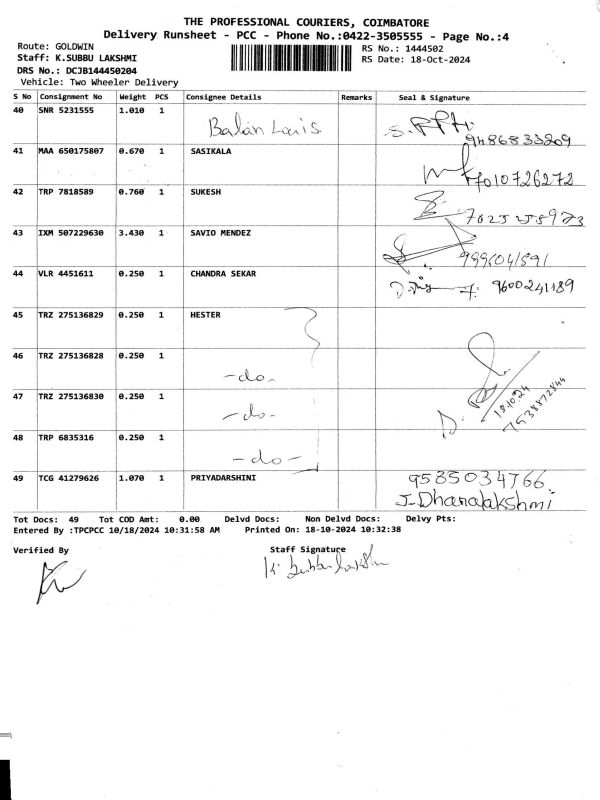 THE PROFESSIONAL COURIERS, COIMBATORE
Delivery Runsheet - PCC - Phone No.:0422-3505555 - Page No.:4
Route: GOLDWIN
RS No.: 1444502
Staff: K.SUBBU LAKSHMI
RS Date: 18-Oct-2024
DRS No.: DCJB144450204
Vehicle: Two Wheeler Delivery
S No Consignment No Weight PCS Consignee Details Remarks Seal & Signature
40 SNR 5231555 1.010 1 Balan Lais.
9486833209
41 MAA 650175807 0.670 1 SASIKALA
7010726272
42 TRP 7818589 0.760 1 SUKESH
43 IXM 507229630 3.430 1 SAVIO MENDEZ
44 VLR 4451611 0.250 1 CHANDRA SEKAR
9600241189
45 TRZ 275136829 0.250 1 HESTER
46 TRZ 275136828 0.250 1
-do-
47 TRZ 275136830 0.250 1
-do-
18.10.24
7538872844
48 TRP 6835316 0.250 1
-do-
49 TCG 41279626 1.070 1 PRIYADARSHINI 9585034766.
J-Dhanalakshmi
Tot Docs: 49 Tot COD Amt: 0.00 Delvd Docs: Non Delvd Docs: Delvy Pts:
Entered By :TPCPCC 10/18/2024 10:31:58 AM Printed On: 18-10-2024 10:32:38
Verified By Staff Signature
K. Subbulakshm